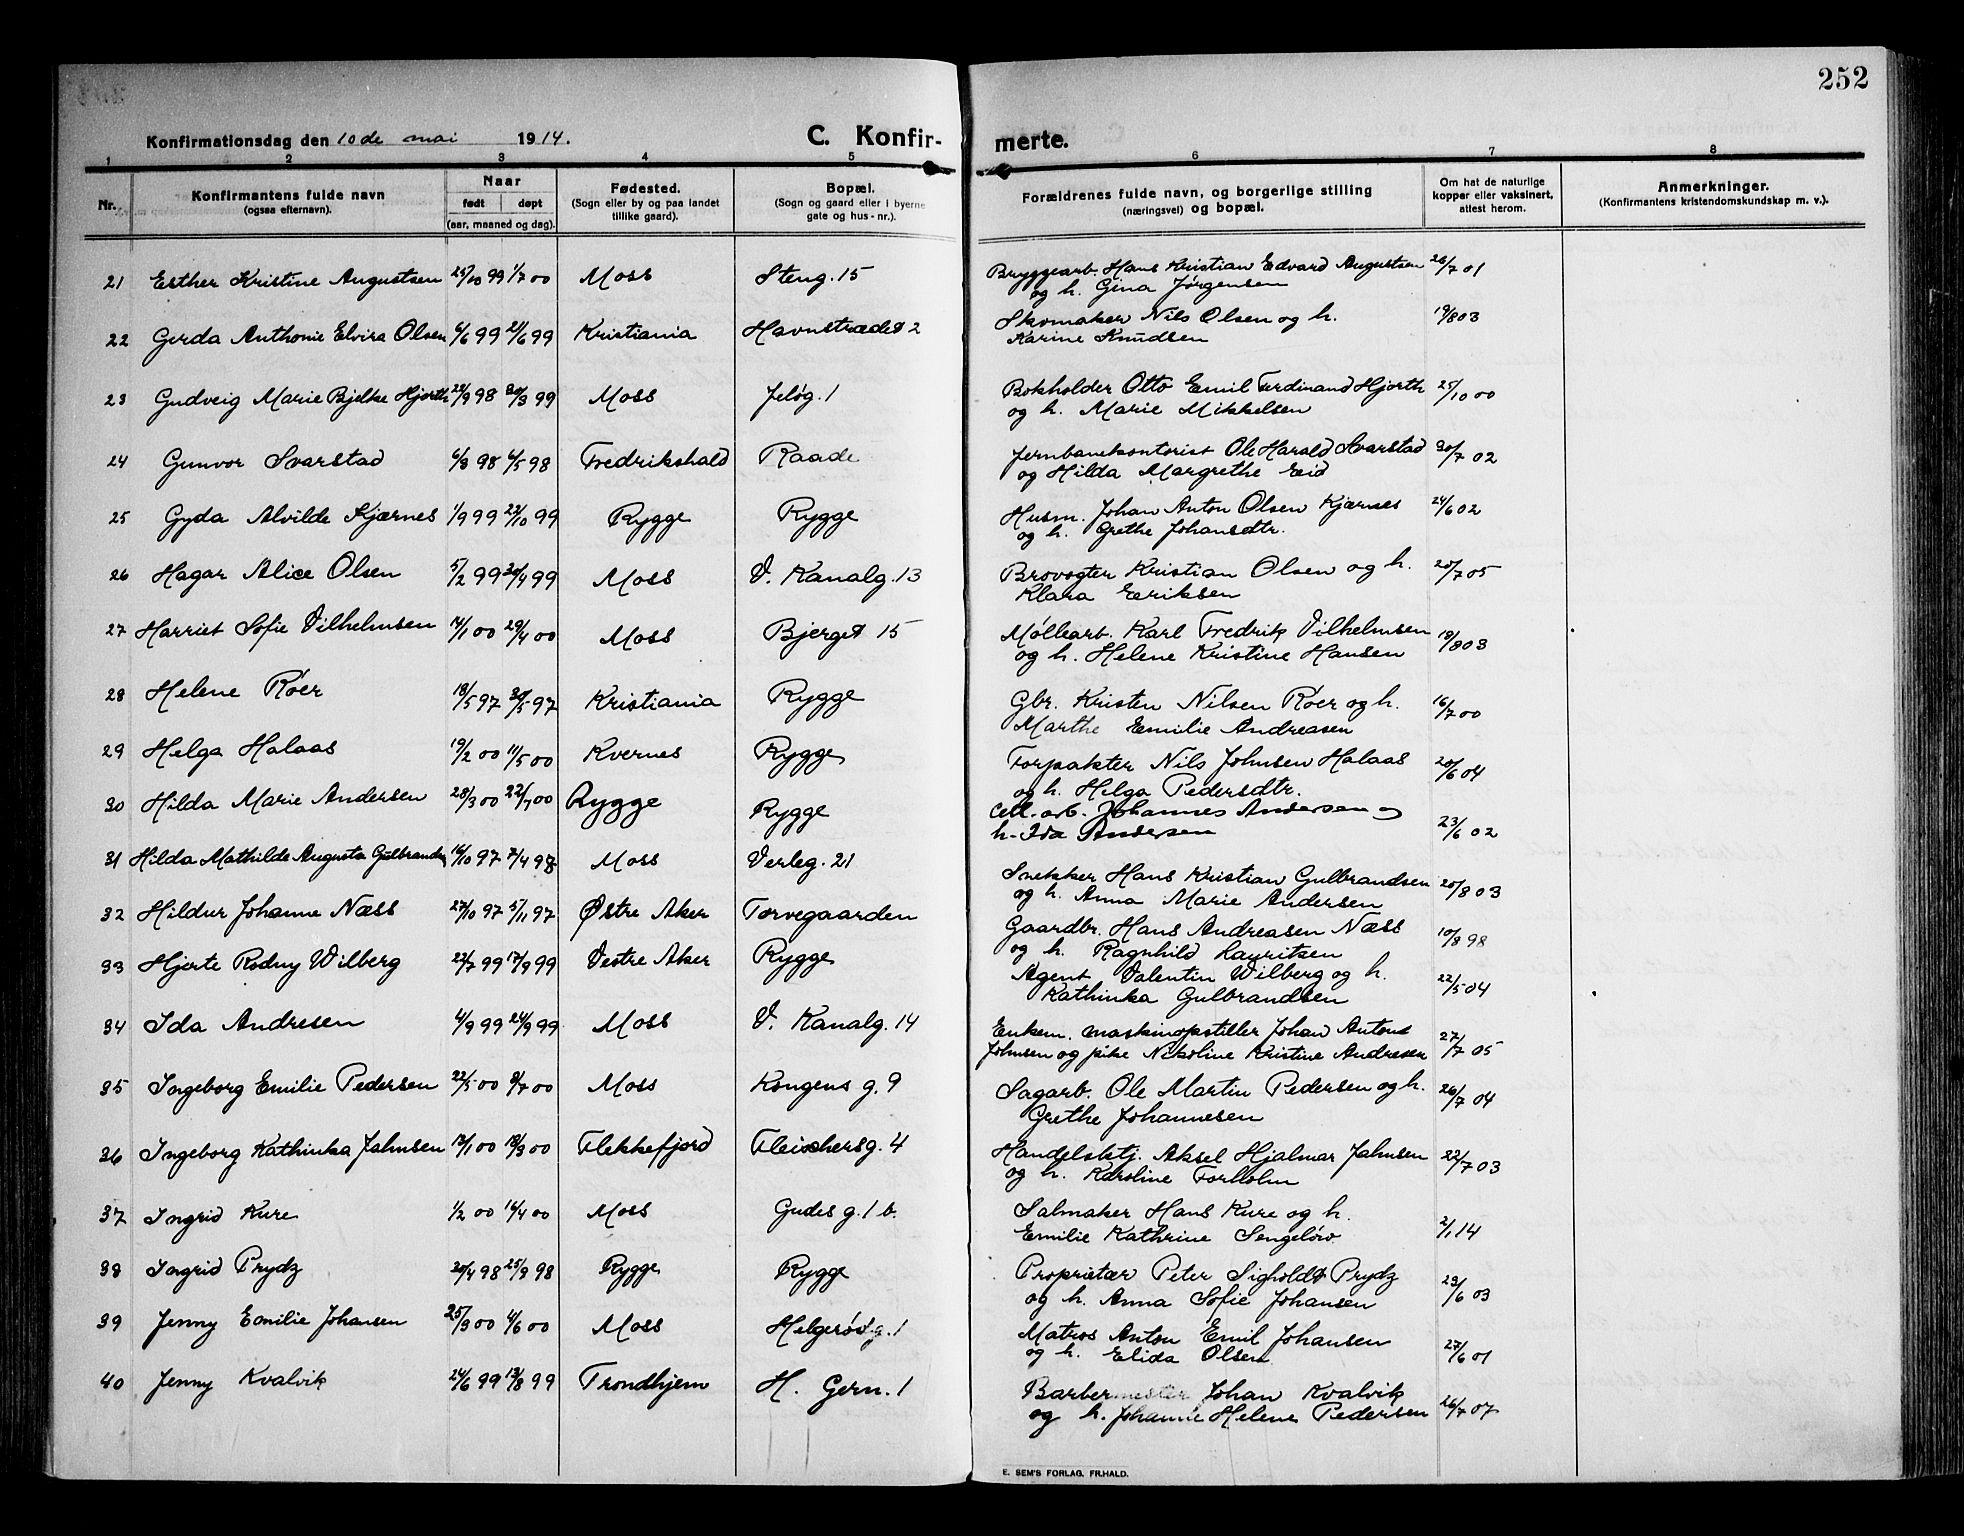 252
Konfirmationsdag den 10de mai 1914.
C. Konfir-
merte.
1 2 3 4 5 6 7 8
Nr.
Konfirmantens fulde navn
(ogsaa efternavn).
Naar
født døpt
(aar, maaned og dag).
Fødested.
(Sogn eller by og paa landet
tillike gaard).
Bopæl.
(Sogn og gaard eller i byerne
gate og hus-nr.).
Forældrenes fulde navn, og borgerlige stilling
(næringsvei) og bopæl.
Om hat de naturlige
kopper eller vaksinert,
attest herom.
Anmerkninger.
(Konfirmantens kristendomskundskap m. v.).
21 Esther Kristine Augustsen 25/10 99 1/7 00 Moss Steng. 15 Bryggearb. Hans Kristian Edvard Augustsen 26/7 01
og h. Gina Jørgensen
22 Gerda Anthonie Elvira Olsen 6/6 99 21/6 99 Kristiania Havnstrædet 2 Skomaker Nils Olsen og h. 19/8 03
Karine Knudsen
23 Gudveig Marie Bjelke Hjorth 22/9 98 30/3 99 Moss Jeløg. 1 Bokholder Otto Emil Ferdinand Hjorth 25/10 00
og h. Marie Mikkelsen
24 Gunvor Svarstad 6/3 98 6/5 98 Fredrikshald Raade Jernbanekontorist Ole Harald Svarstad 30/7 02
og Hilda Margrethe Eid
25 Gyda Alvilde Kjærnes 1/9 99 22/10 99 Rygge Rygge Husm. Johan Anton Olsen Kjærnes 24/6 02
og h. Grethe Johansdtr.
26 Hagar Alice Olsen 5/2 99 30/4 99 Moss V. Kanalg. 13 Brovogter Kristian Olsen og h. 20/7 05
Klara Eriksen
27 Harriet Sofie Vilhelmsen 14/1 00 29/4 00 Moss Bjerget 15 Møllearb. Karl Fredrik Vilhelmsen 19/8 03
og h. Helene Kristine Hansen
28 Helene Røer 18/5 97 30/5 97 Kristiania Rygge Gbr. Kristen Nilsen Røer og h. 16/7 00
Marthe Emilie Andreasen
29 Helga Halaas 19/2 00 11/5 00 Kvernes Rygge Forpakter Nils Johnsen Halaas 20/6 04
og h. Helga Pedersdtr.
30 Hilda Marie Andersen 28/3 00 22/7 00 Rygge Rygge Cell. arb. Johannes Andersen og 23/6 02
h. Ida Andersen
31 Hilda Mathilde Augusta Gulbrandsen 16/10 97 7/4 98 Moss Verleg. 21 Snekker Hans Kristian Gulbrandsen 20/8 03
og h. Anna Marie Andersen
32 Hildur Johanne Næss 27/10 97 5/11 97 Østre Aker Torvegaarden Gaardbr. Hans Andreasen Næss 10/8 98
og h. Ragnhild Lauritsen
33 Hjerte Rodny Wilberg 22/7 99 17/9 99 Vestre Aker Rygge Agent Valentin Wilberg og h. 22/5 04
Kathinka Gulbrandsen
34 Ida Andresen 4/9 99 24/9 99 Moss V. Kanalg. 14 Enkem. maskinopstiller Johan Anton 27/7 05
Johnsen og pike Nikoline Kristine Andresen
35 Ingeborg Emilie Pedersen 22/5 00 8/7 00 Moss Kongens g. 9 Sagarb. Ole Martin Pedersen og h. 26/7 04
Grethe Johannesen
36 Ingeborg Kathinka Jahnsen 12/1 00 18/3 00 Flekkefjord Fleischersg. 4 Handelsktj. Aksel Hjalmar Jahnsen 22/7 03
og h. Karoline
37 Ingrid Kure 1/2 00 16/4 00 Moss Gudes g. 1 b. Salmaker Hans Kure og h. 2/1 14
Emilie Kathrine Sengeløw
38 Ingrid Prydz 20/4 98 25/9 98 Rygge Rygge Proprietær Peter Sigholdt Prydz 23/6 03
og h. Anna Sofie Johansen
39 Jenny Emilie Johansen 25/3 00 4/6 00 Moss Helgerødg. 1 Matros Anton Emil Johansen 27/6 01
og h. Elida Olsen
40 Jenny Kvalvik 24/6 99 13/8 99 Trondhjem H. Gern. 1 Barbermester Johan Kvalvik 26/7 07
og h. Johanne Helene Pedersen
E. SEM'S FORLAG. FR.HALD.